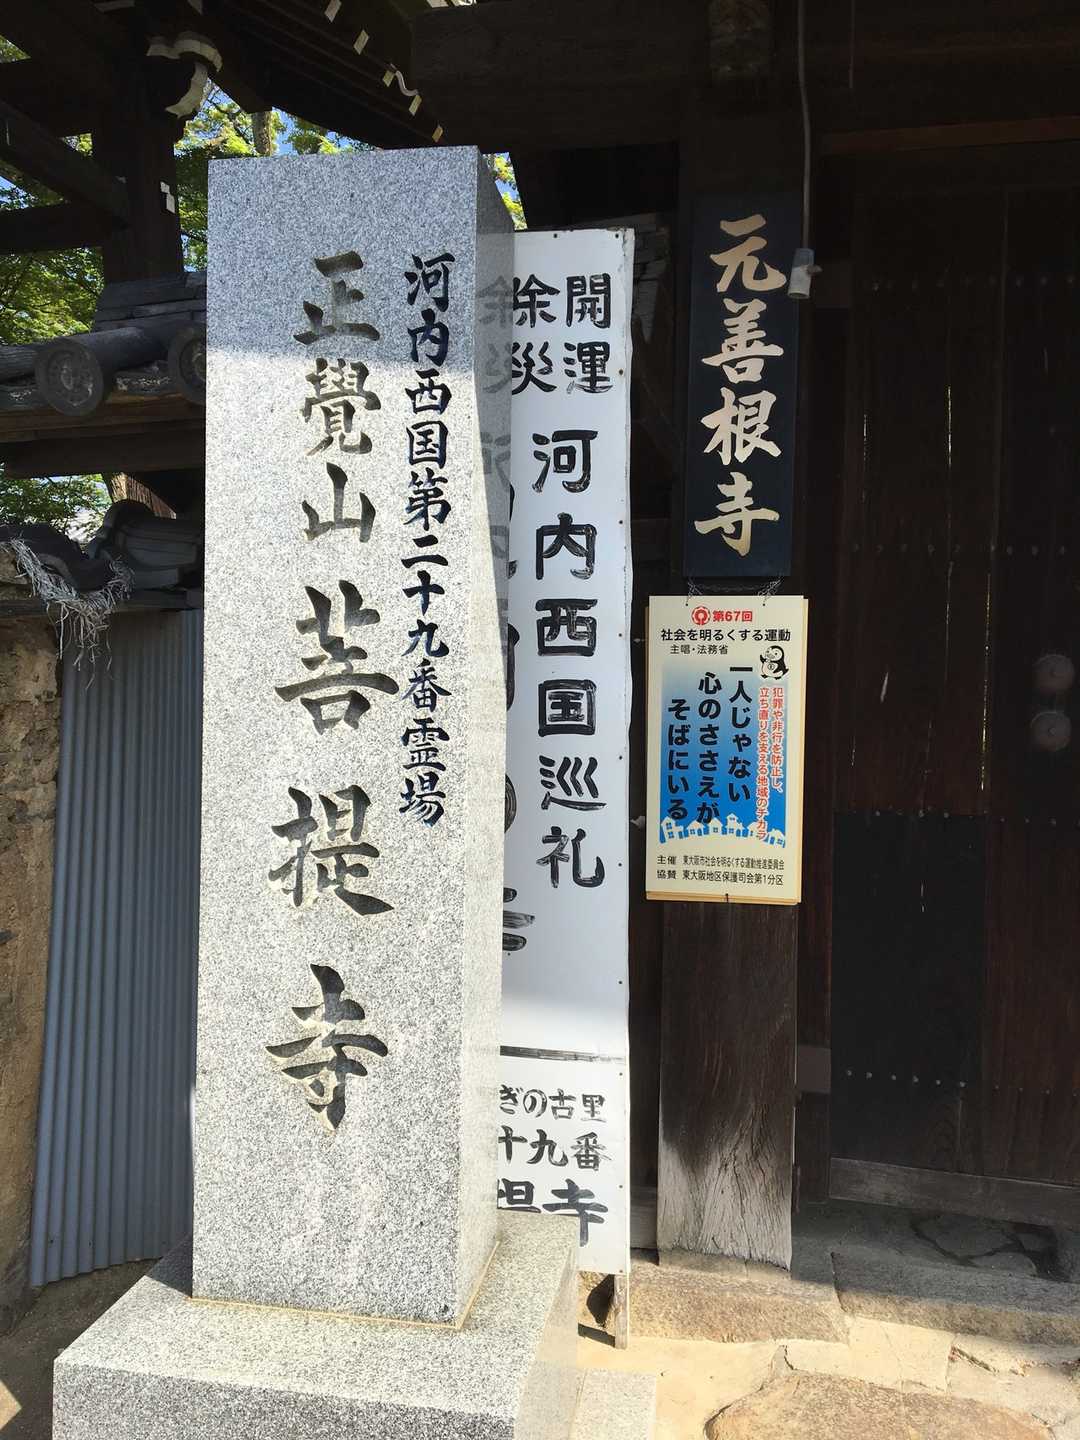 河内西国第二十九番霊場
正覺山菩提寺
開運
除災
河内西国巡礼
ぎの古里
十九番
提寺
元善根寺
第67回
社会を明るくする運動
主唱・法務省
犯罪や非行を防止し、
立ち直りを支える地域のチカラ
一人じゃない
心のささえが
そばにいる
主催 東大阪市社会を明るくする運動推進委員会
協賛 東大阪地区保護司会第1分区